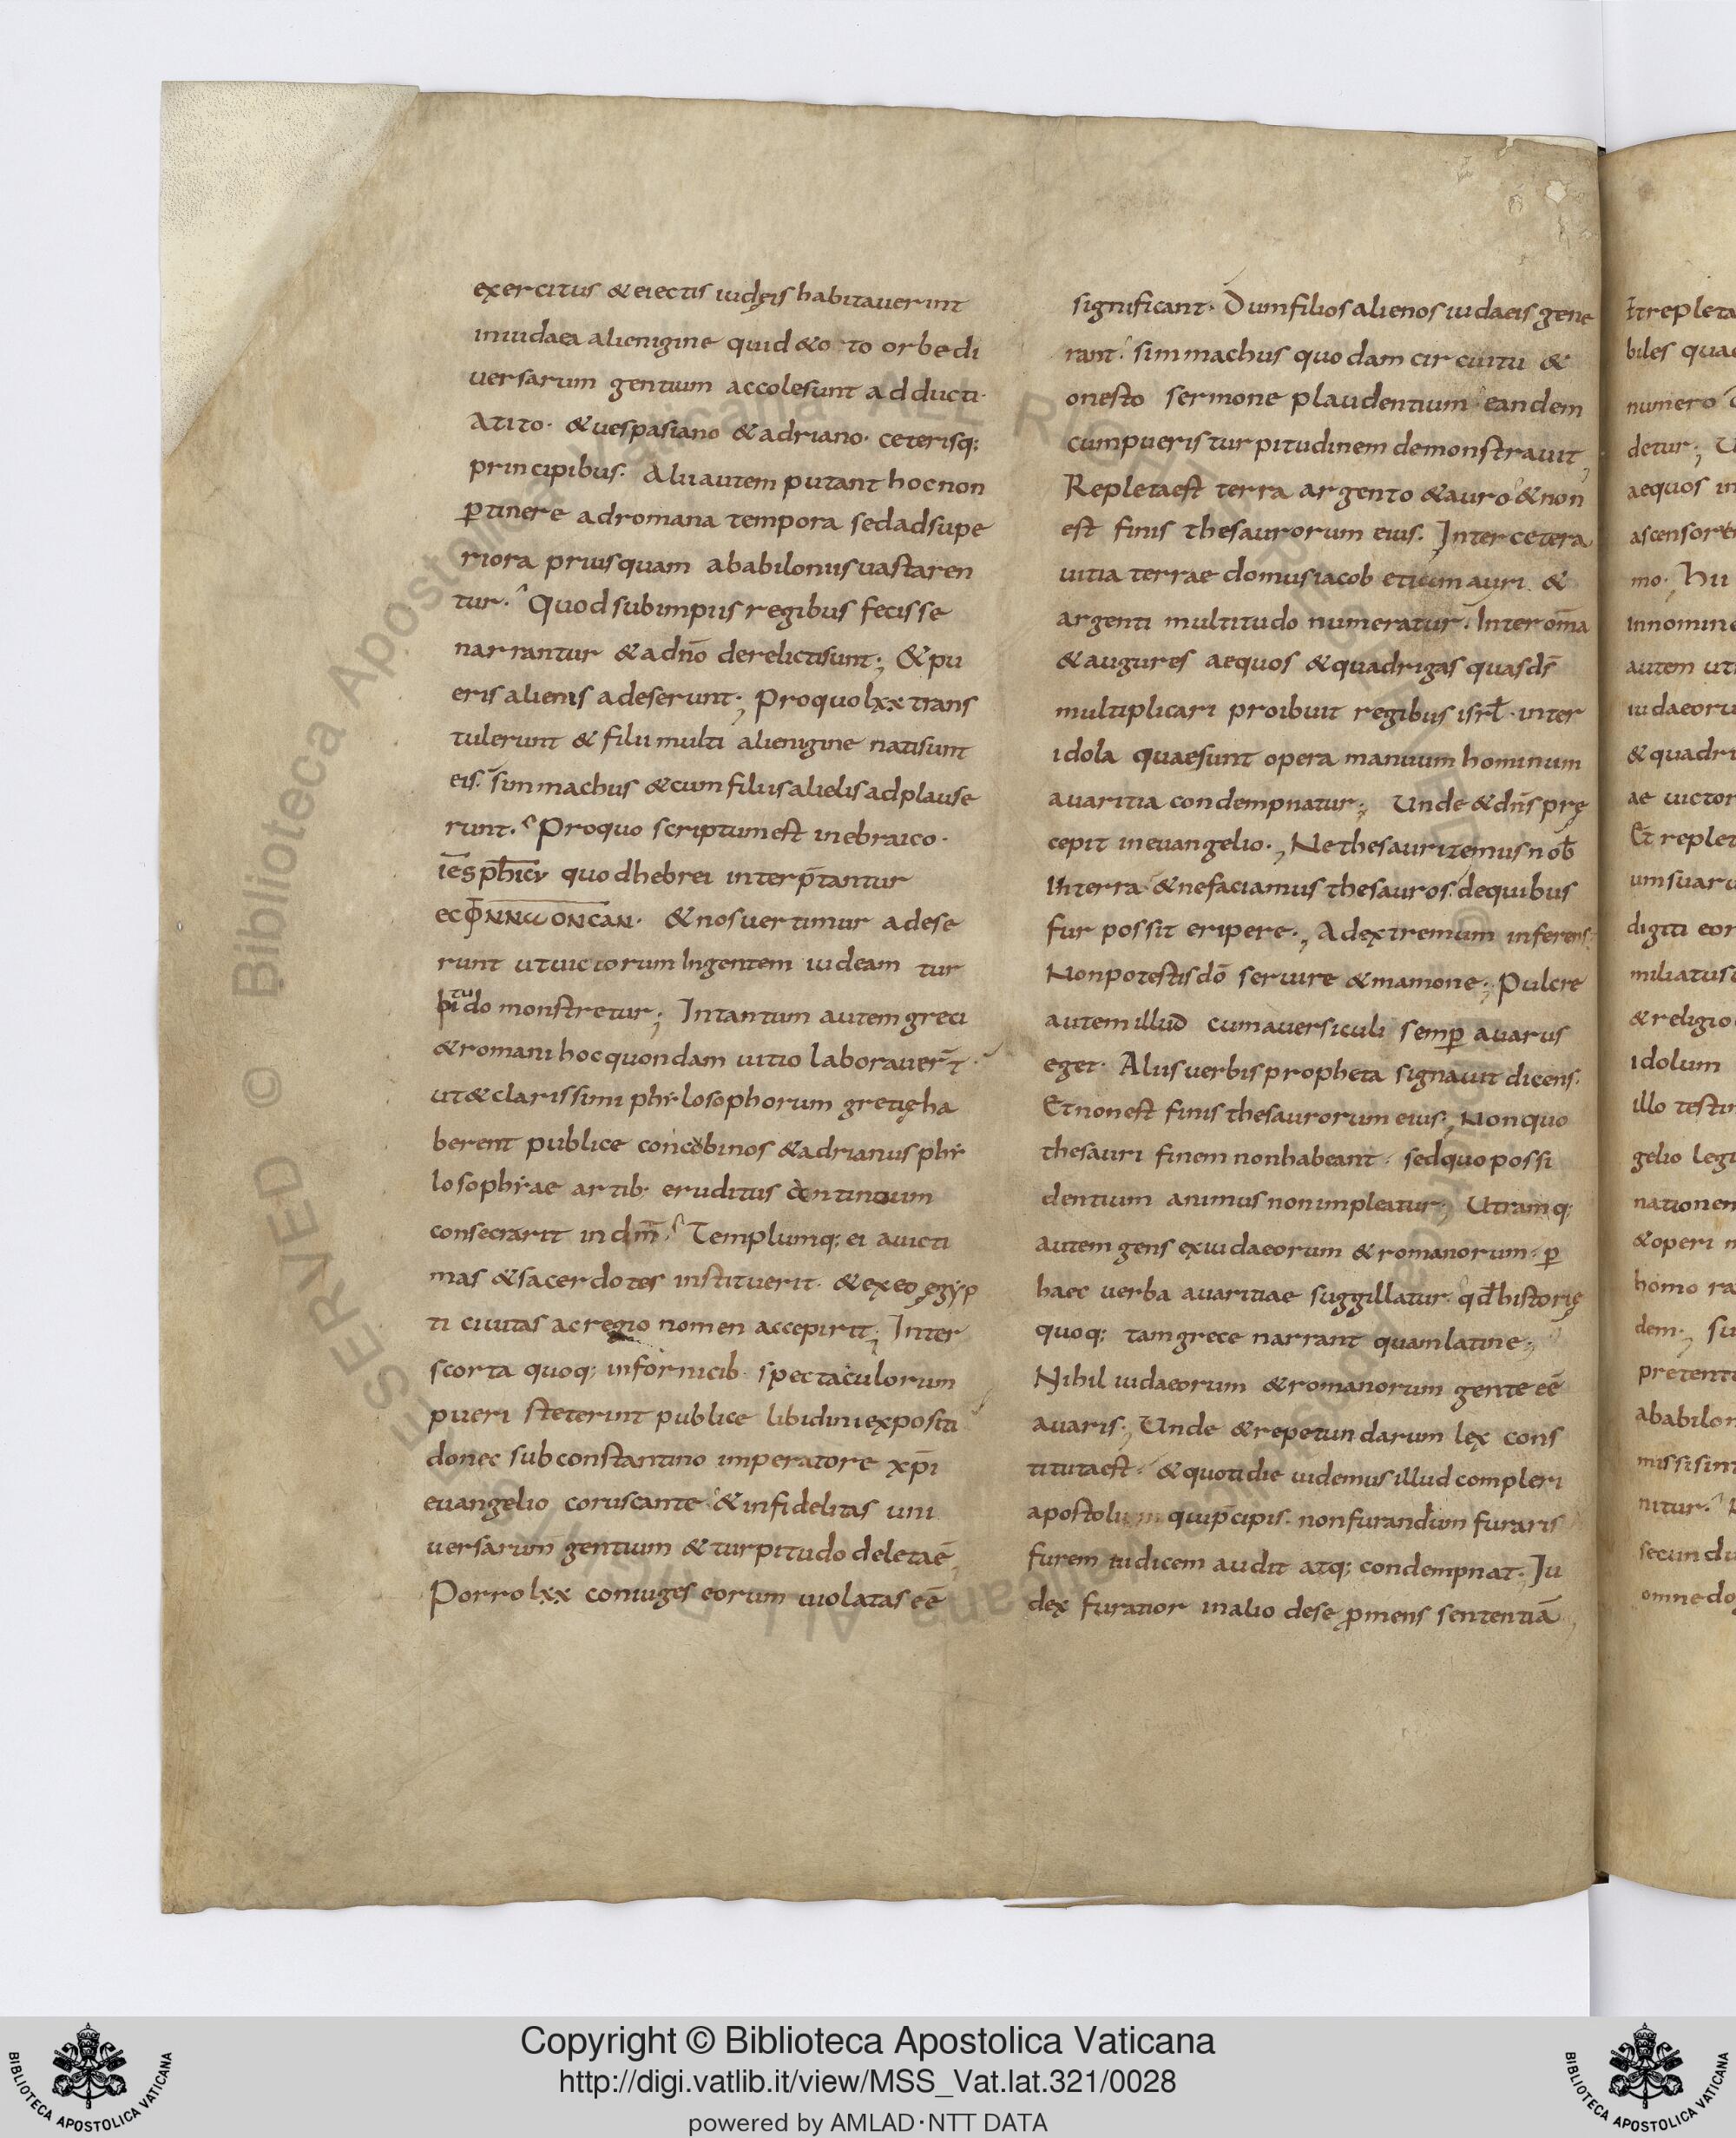 exercitus & eiectis iudęis habitauerint
iniudaea alienigine quid &o to orbe di
uersarum gentium accolesunt adducti·
Atito· & uespasiano & adriano· ceterisq;
principibus· Alii autem putant hoc non
ꝑtinere ad romana tempora sed ad supe
riora priusquam ababiloniis uastaren
tur· Quod sub impiis regibus fecisse
narrantur & adn̄o derelicti sunt; & pu
eris alienis adeserunt; Pro quo lxx trans
tulerunt & filii multi alienigine nati sunt
eis· simmachus & cum filiis alielis ad plause
runt· Pro quo scriptum est in ebraico·
quod hebrei interp̄tantur
& nos uertimur adese
runt ut uictorum Ingentem iudeam tur
pitudo monstretur; Intantum autem greci
& romani hoc quondam uitio laborauer̄t·
ut & clarissimi phẏlosophorum gretięha
berent publice concobinos & adrianus phẏ
losophẏae artib· eruditus continoum
consecrarit in dm̄· Templumq; ei a uicti
mas & sacerdotes instituerit· & ex eo ęgẏp
ti ciuitas ac regio nomen accepirit; Inter
scorta quoq; infornicib· spectaculorum
pueri steterint publice libidini expositi
donec sub constantino imperatore xp̄i
euangelio coruscante· & infidelitas uni
uersarum gentium & turpitudo deletaē;
Porro lxx coniuges eorum uiolatas eē
significant· Dum filios alienos iudaeis gene
rant· simmachus quodam circuitu &
onesto sermone plaudentium eandem
cum pueris turpitudinem demonstrauit;
Repleta est terra argento & auro & non
est finis thesaurorum eius· Inter cetera
uitia terrae domus iacob etium auri &
argenti multitudo numeratur· Inter om̄a
& augures aequos & quadrigas quas ds̄
multiplicari proibuit regibus isrł· inter
idola quae sunt opera manuum hominum
auaritia condempnatur; Unde & dn̄s prę
cepit in euangelio·, Ne thesauritemus nob̄
In terra & ne faciamus thesauros· de quibus
fur possit eripere·, Ad extremum inferens·
Non potestis dō seruire & mamone·; Pulcre
autem illud cum a uersiculi semꝑ auarus
eget· Aliis uerbis propheta signauit dicens·
Et non est finis thesaurorum eius·, Non quo
thesauri finem non habeant· sed quo possi
dentium animus non impleatur· Utramq;
autem gens ex iudaeorum & romanorum· ꝑ
haec uerba auaritiae suggillatur· qđ historię
quoq; tam grece narrant quam latine·;
Nihil iudaeorum & romanorum gente eē
auaris·, Unde & repetundarum lex cons
tituta est· & quotidie uidemus illud compleri
apostolu qui p̄cipis· non furandum furaris
furem iudicem audit atq; condempnat·, Iu
dex furatior in alio de se ꝓmens sententiā
Et repleta
biles quae
numero
detur;
aequos in
ascensorem
mo· Hii
Innomine
autem uti
iudaeoru
& quadri
ae uictor
Et replet
um suaru
digiti eor
miliatus
& religio
idolum
illo testim
gelio legi
nationem
& operi
homo ra
dem·, su
pretenti
ababilon
missi sint
nitur·
secundu
omne do
Copyright © Biblioteca Apostolica Vaticana
http://digi.vatlib.it/view/MSS_Vat.lat.321/0028
powered by AMLAD·NTT DATA
BIBLIOTECA APOSTOLICA VATICANA
BIBLIOTECA APOSTOLICA VATICANA